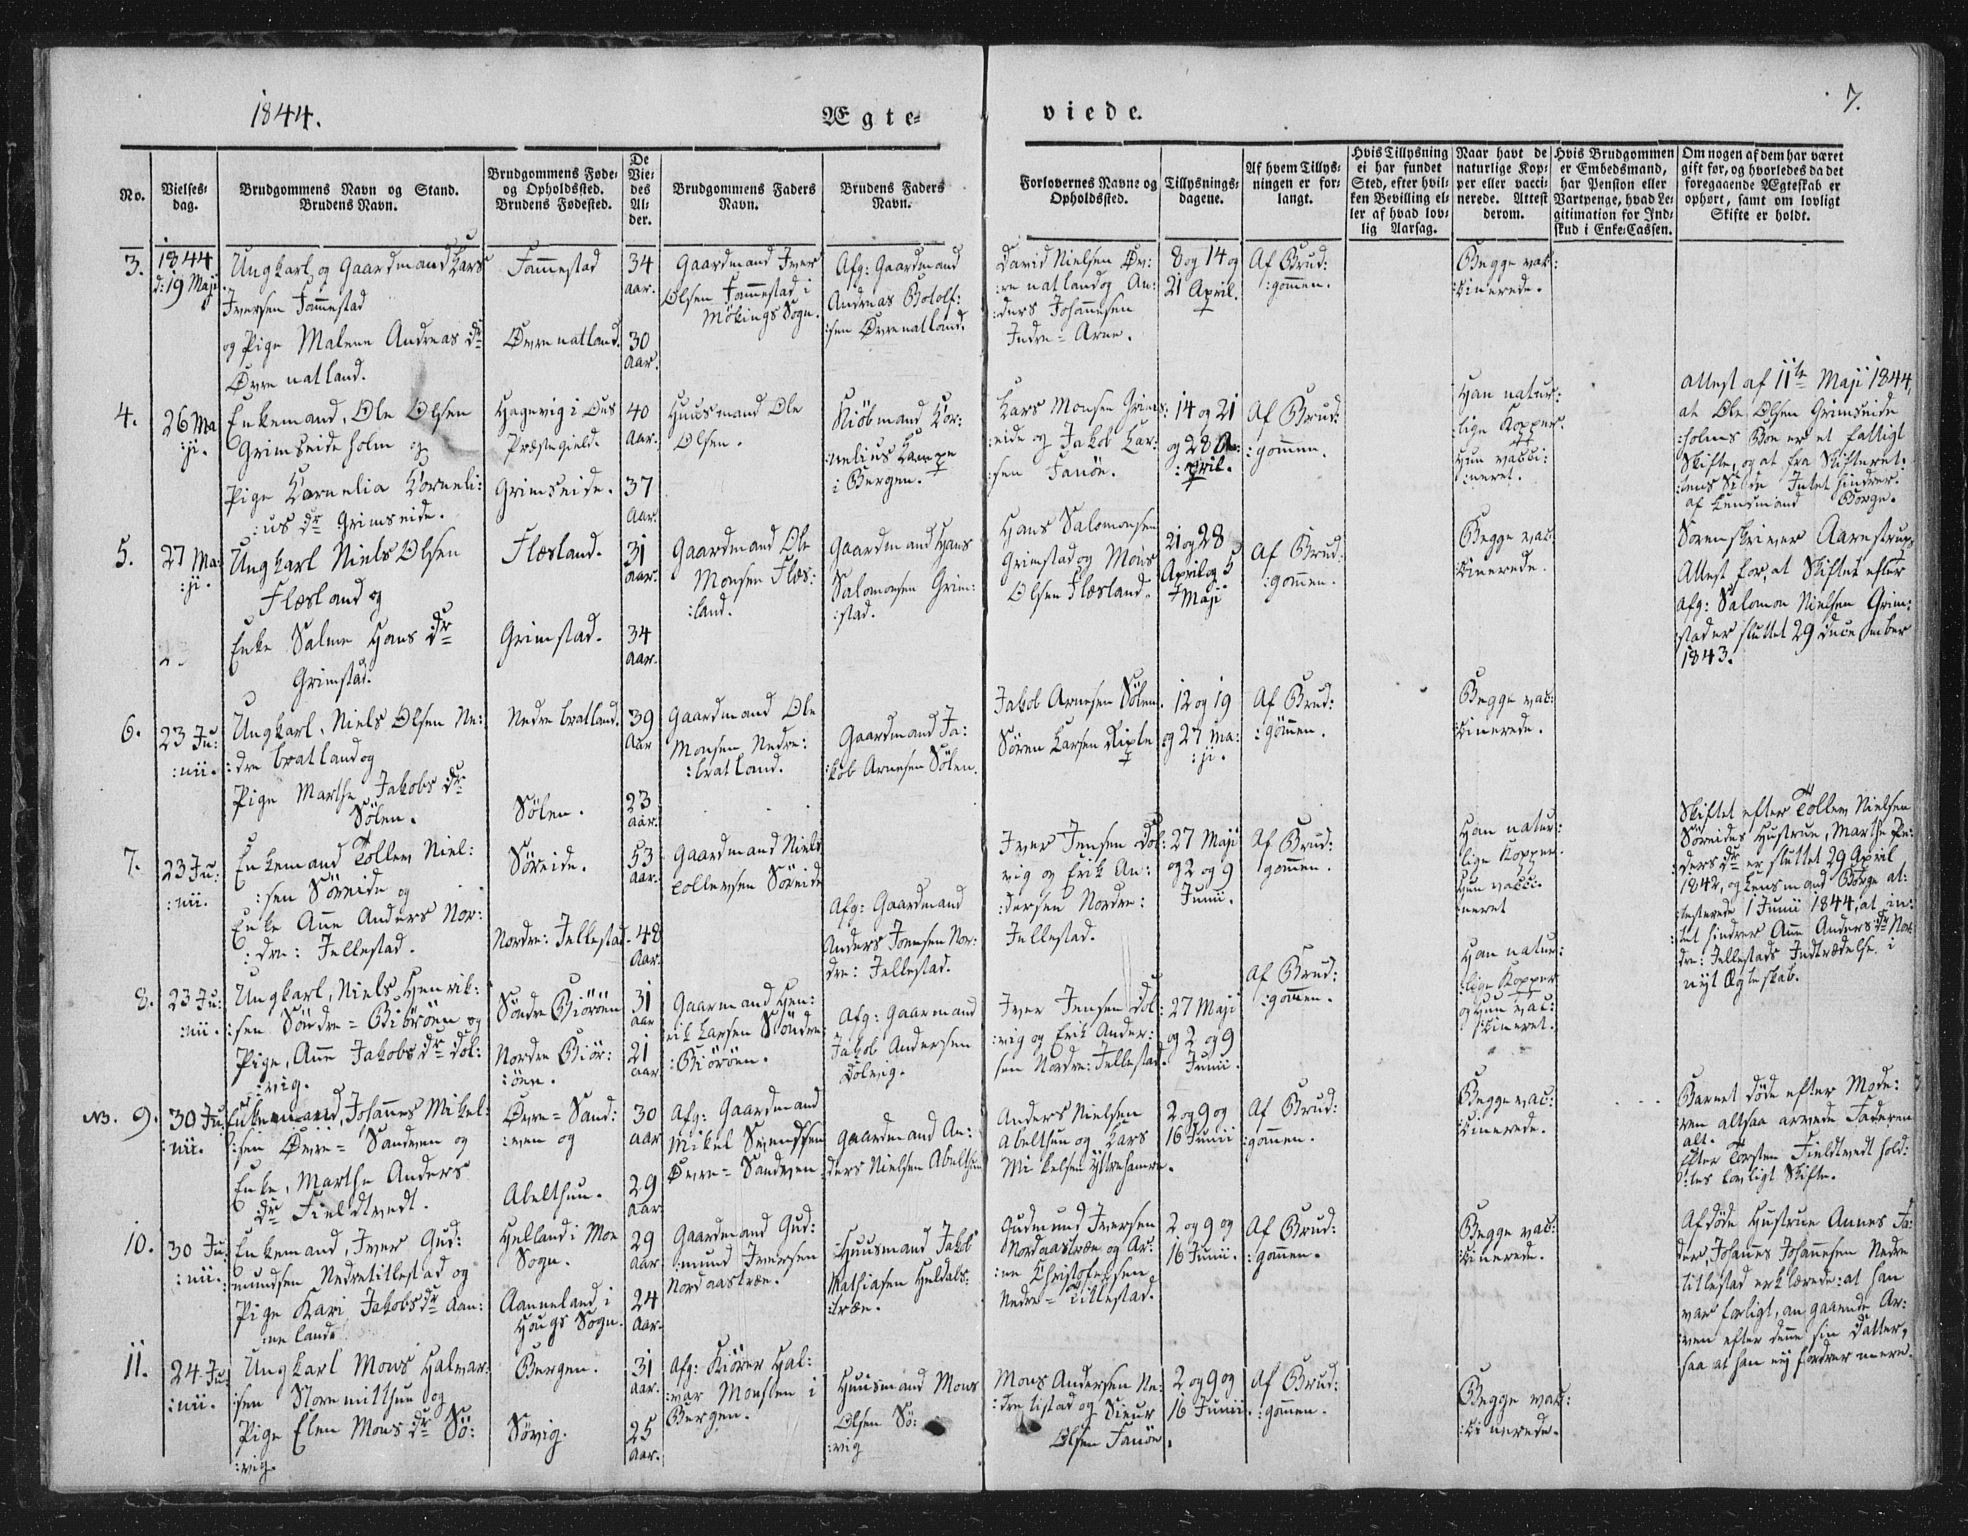 1844.
Ægte-
viede.
7.
No.
Vielses-
dag.
Brudgommens Navn og Stand.
Brudens Navn.
Brudgommens Føde-
og Opholdssted.
Brudens Fødested.
De
Vie-
des
Al-
der.
Brudgommens Faders
Navn.
Brudens Faders
Navn.
Forlovernes Navne og
Opholdssted.
Tillysnings-
dagene.
Af hvem Tillys-
ningen er for-
langt.
Hvis Tillysning
ei har fundet
Sted, efter hvil-
ken Bevilling el-
ler af hvad lov-
lig Aarsag.
Naar havt de
naturlige Kop-
per eller vacci-
nerede. Attest
derom.
Hvis Brudgommen
er Embedsmand,
har Pension eller
Vartpenge, hvad Le-
gitimation for Ind-
skud i Enke-Cassen.
Om nogen af dem har været
gift før, og hvorledes da det
foregaaende Ægteskab er
ophørt, samt om lovligt
Skifte er holdt.
3.
1844
d: 19 Maji
Ungkarl og Gaardmand Lars
Iversen Tommestad
og Pige Malene Andreas dr
Øvre natland.
Tommestad
Øvre natland.
34
aar.
30
aar.
Gaardmand Iver
Olsen Tommestad i
Mökings Sogn.
Afg: Gaardmand
Andreas Botolf:
:sen Øvre natland.
David Nielsen Øv:
:re natland og An:
:ders Johannesen
Indre = Arne.
8 og 14 og
21 April.
Af Brud:
:gommen.
Begge vac:
:cinerede.
4.
26 Ma
:ji.
Enkemand, Ole Olsen
Grimseide holm og
Pige Kornelia Korneli:
:us dr Grimseide.
Hagevig i Ous
Præstegield.
Grimseide.
40
aar.
37
aar.
Huusmand Ole
Olsen.
Kiöbmand Kor:
:nelius Kampe
i Bergen.
Lars Monsen Grims:
:eide og Jakob Lar:
:sen Fanöe.
14 og 21
og 28 A:
:pril.
Af Brud:
:gommen.
Han natur:
:lige Kopper.
Hun vacci:
:neret.
Attest af 11te Maji 1844,
at Ole Olsen Grimseide
:holms Boe er et fattigt
Skifte, og at fra Skifteret:
:tens Side Intet hindrer.
af Lensmand Borge.
5.
27 Ma:
:ji.
Ungkarl Niels Olsen
Flæsland og
Enke Salme Hans dr
Grimstad.
Flæsland.
Grimstad.
31
aar.
34
aar.
Gaardmand Ole
Monsen Flæs:
:land.
Gaardmand Hans
Salomonsen Grim:
:stad.
Hans Salomonsen
Grimstad og Mons
Olsen Flæsland.
21 og 28
April og 5
Maji
Af Brud:
:gommen.
Begge vac:
:cinerede.
Sorenskriver Aarestrups
Attest for, at Skiftet efter
Afg: Salomon Nielsen Grim:
:stad er sluttet 29 december
1843.
6.
23 Ju:
:nii.
Ungkarl, Niels Olsen Ne:
:dre bratland og
Pige Marthe Jakobs dr
Sölen.
Nedre bratland.
Sölen.
39
aar
23
aar.
Gaardmand Ole
Monsen Nedre:
:bratland.
Gaardmand Ja:
:kob Arnesen Sölen.
Jakob Arnesen Sölen.
Sören Larsen Riple
12 og 19
og 27 Ma:
:ji.
Af Brud:
:gommen.
Begge vac:
:cinerede.
7.
23 Ju:
:nii.
Enkemand Tollev Niel:
:sen Söreide og
Enke Ane Anders Nor:
:dre: Jellestad.
Söreide.
Nordre: Jellestad.
53
aar.
48
aar.
Gaardmand Niels
Tollevsen Söreide
Afg: Gaardmand
Anders Joensen Nor:
dre: Jellestad.
Iver Jensen Dol:
vig og Erik An:
:dersen Nordre:
Jellestad.
27 Maji
og 2 og 9
Junii.
Af Brud:
:gommen.
Han natur:
:lige Kopper.
Hun vacci:
:neret
Skiftet efter Tollev Nielsen
Söreides Hustrue, Marthe Pe:
:ders dr er sluttet 29 April
1842, og Lensmand Borge at:
:testerede 1 Junii 1844, at in:
:tet hindrer Ane Anders dr Nor:
dre: Jellestads Indtrædelse i
nyt Ægteskab.
8.
23 Ju:
:nii.
Ungkarl, Niels Henrik:
:sen Söndre = Biöröen og
Pige, Ane Jakobs dr Dol:
:vig.
Söndre Biöröen
Nordre Biör:
:öen.
31
aar
21
aar
Gaarmand Hen:
:rik Larsen Söndre
:Biöröen.
Afg: Gaarmand
Jakob Andersen
Dolvig.
Iver Jensen Dol:
:vig og Erik Ander:
sen Nordre: Jellestad.
27 Maji
og 2 og 9
Junii.
Af Brud:
:gommen.
Han natur:
:lige Kopper
og Hun vac:
:cineret.
NB. 9.
30 Ju:
:nii.
Enkemand, Johannes Mikel:
:sen Øvre = Sandven og
Enke, Marthe Anders
dr Fieldtvedt.
Øvre = Sand:
:ven og
Abelthun.
30
aar
29
aar.
Afg: Gaardmand
Mikel Svendsen
Øvre = Sandven
Gaardmand An:
ders Nielsen Abelthun
Anders Nielsen
Abelthun og Lars
Mikelsen Yttrehamre.
2 og 9 og
16 Junii
Af Brud:
:gommen.
Begge vac:
:cinerede.
Barnet döde efter Mode:
:ren altsaa arvede Faderen
alt.
Efter Torsten Fieldtvedt hold:
:tes lovligt Skifte.
10.
30 Ju:
:nii.
Enkemand, Iver Gud:
:mundsen Nedre titlestad og
Pige Kari Jakobs dr Aan:
:neland.
Helland i Moe
Sogn.
Aanneland i
Hougs Sogn.
29
aar
24
aar.
Gaardmand Gud:
:mund Iversen
Nordaastræe.
Huusmand Jakob
Mathiasen Heldals:
:træe.
Gudmund Iversen
Nordaastræe og Ar:
:ne Christofersen
Nedre = Titlestad.
2 og 9 og
16 Junii.
Af Brud:
:gommen.
Begge vac:
:cinerede.
Afdöde Hustrue Annes Fa:
:der, Johannes Johannesen Nedre
titlestad erklærede: at han
var forligt, angaaende Ar:
:ven efter denne sin Datter,
saa at han ey fordrer mere.
11.
24 Ju:
:nii.
Ungkarl Mons Halvar:
:sen Store milthun og
Pige Elen Mons dr Sö:
:vig.
Bergen.
Sövig.
31
aar.
25
aar.
Afg: Kiörer Hal:
:var Monsen i
Bergen.
Huusmand Mons
Olsen Sö:
:vig
Mons Andersen Ne:
:dre tistad og Sieur
Olsen Fanöe.
2 og 9 og
16 Junii.
Af Brud:
:gommen.
Begge vac:
:cinerede.